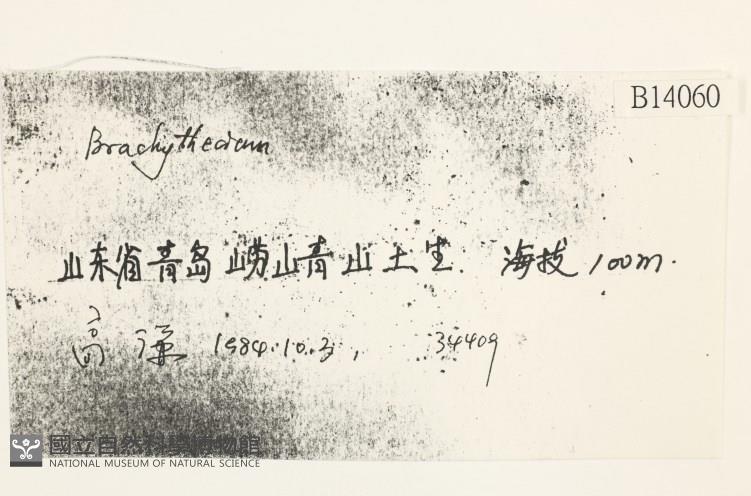 B14060
Brachythecium
山东省青岛崂山青山土生. 海拔 100m.
高谦 1984.10.3, 34409
國立自然科學博物館
NATIONAL MUSEUM OF NATURAL SCIENCE